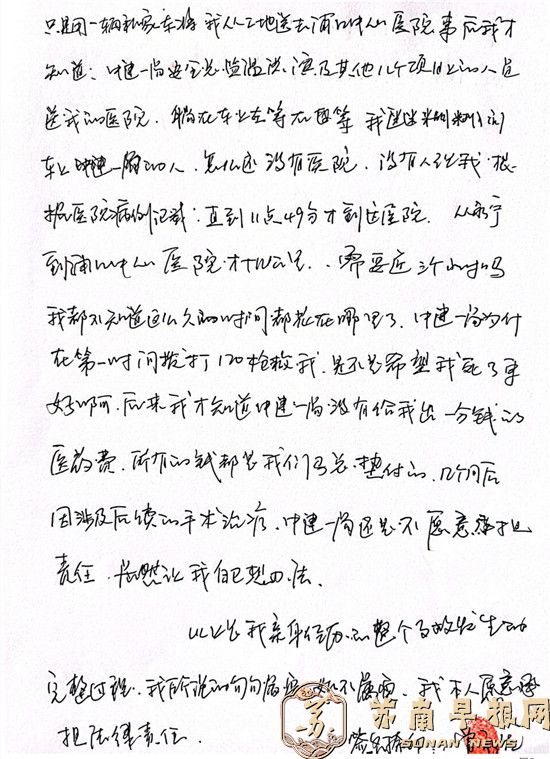 只是用一辆私家车将我从工地送去浦口中心医院事后我才
知道：中建一局安全总监温洪滨及其他几个项目上的人员
送我的医院．躺在车上左等右等 我迷迷糊糊的问
车上中建一局的人，怎么还没有医院，没有人理我．根
据医院病例记载：直到11点49分才到达医院．从永宁
到浦口中心医院．才十以公里．．需要近三个小时吗
我都不知道这么久的时间都花在哪里了．中建一局为什
在第一时间拨打120抢救我．是不是希望我死了更
好啊啊．后来我才知道中建一局没有给我出一分钱的
医药费．所有的钱都是我们马总垫付的．几个月后
因涉及后续的手术治疗．中建一局还是不愿意承担
责任．居然让我自己想办法．
以上是我亲身经历的整个事故发生的
完整过程．我所说的句句属实 如不属实．我本人愿意承
担法律责任．
苏南早报网
SUNAN NEWS